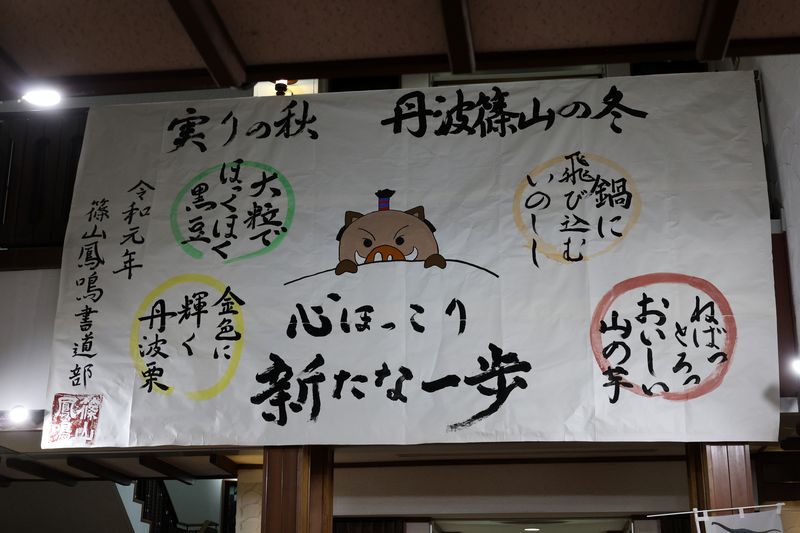 丹波篠山の冬
鍋に
飛び込む
いのしし
ねばっ
とろっ
おいしい
山の芋
心ほっこり
新たな一歩
実りの秋
大粒で
ほくほく
黒豆
金色に
輝く
丹波栗
令和元年
篠山鳳鳴書道部
篠山
鳳鳴